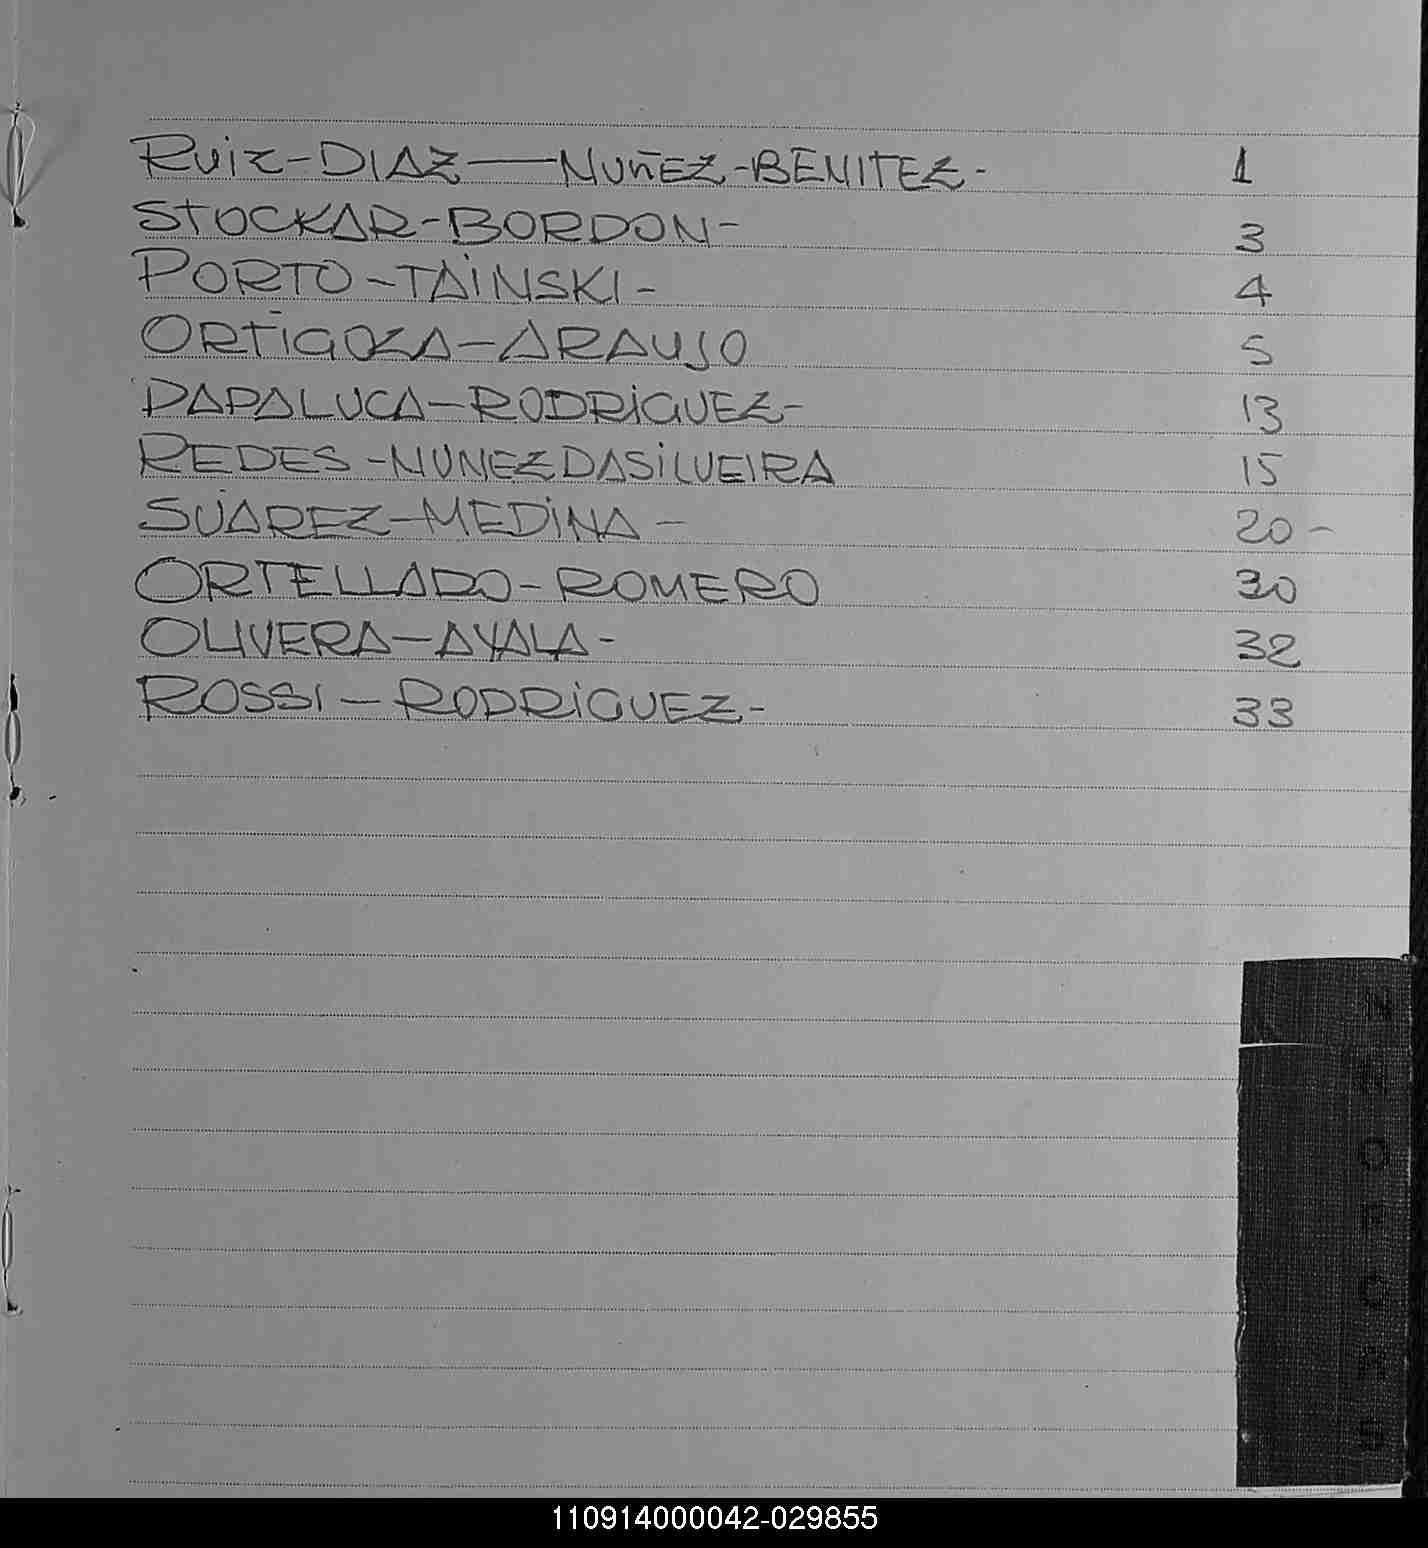 Ruiz-DIAZ—NUÑEZ-BENITEZ- 1
STOCKAR-BORDON- 3
PORTO-TAINSKI- 4
ORTIGOZA-ARAUJO 5
PAPALUCA-RODRIGUEZ- 13
REDES-NUNEZDASILVEIRA 15
SUAREZ-MEDINA- 20-
ORTELLADO-ROMERO 30
OLIVERA-AYALA- 32
ROSSI-RODRIGUEZ- 33
N Ñ O P Q R S
110914000042-029855